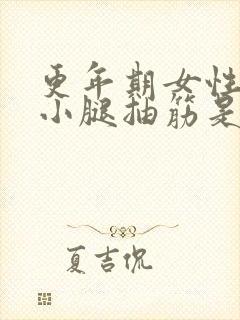 更年期女性
小腿抽筋是
夏吉侃